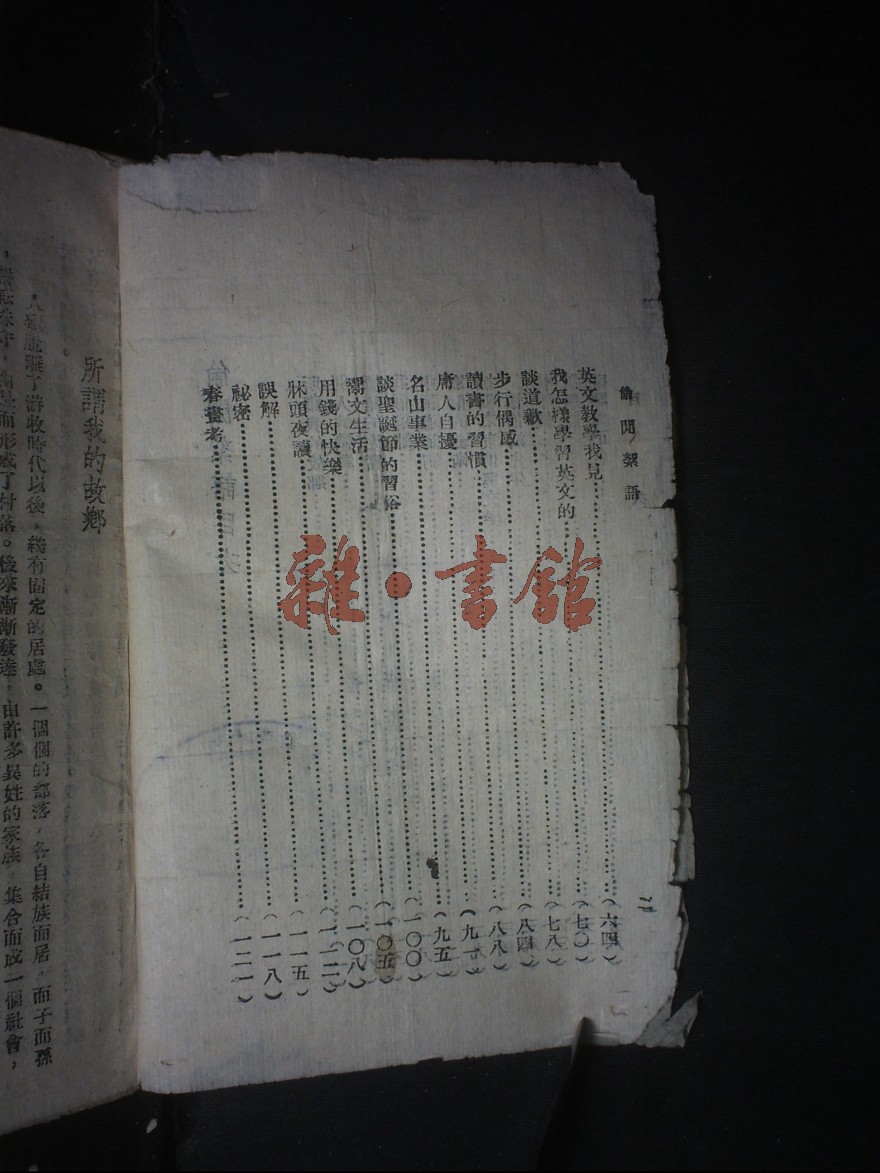 偷閒絮語
英文教學我見(六四)
我怎樣學習英文的(七〇)
談道歉(七八)
步行偶感(八四)
讀書的習慣(八八)
庸人自擾(九一)
名山事業(九五)
談聖誕節的習俗(一〇〇)
鬻文生活(一〇五)
用錢的快樂(一〇八)
牀頭夜讀(一一二)
誤解(一一五)
祕密(一一八)
春畫考(一二一)
所謂我的故鄉
人類脫離了游牧時代以後，纔有固定的居處。一個個的部落，各自結族而居，而子而孫
而形成了村落。後來漸漸發達，由許多異姓的家族，集合而成一個社會，
雜·書館